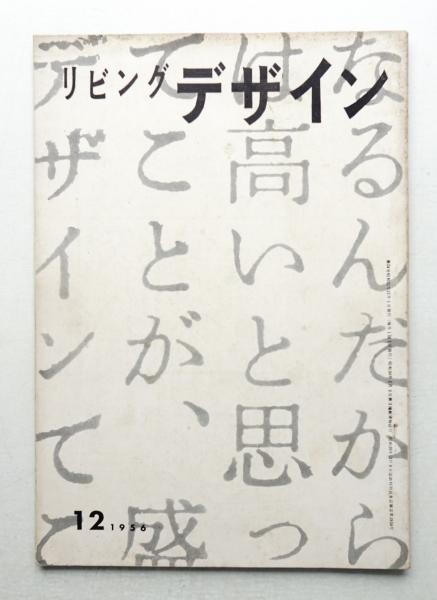 リビングデザイン
なるんだから
は高いと思っ
てことが、盛
デザインてこ
12 1956